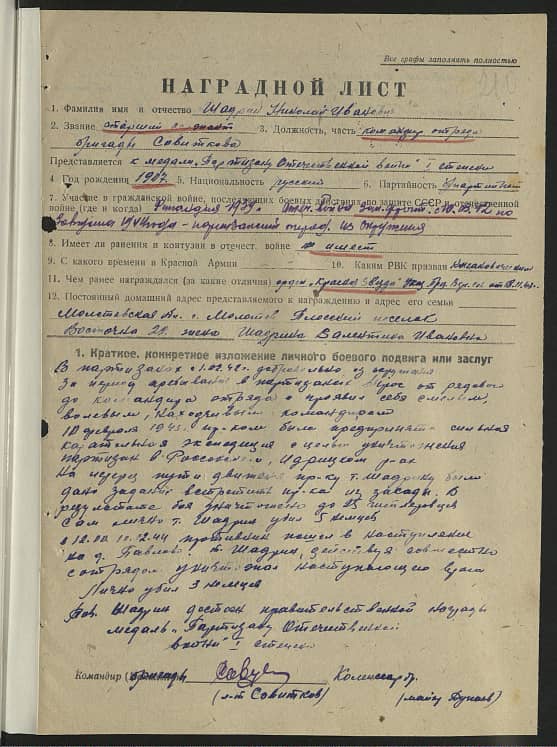 Все графы заполнять полностью
НАГРАДНОЙ ЛИСТ
1. Фамилия имя и отчество Шадрин Николай Иванович
2. Звание старший 3. Должность, часть командир отряда
бригады Совиткова
Представляется к медали „Партизану Отечественной войны" I степени
4. Год рождения 1907 5. Национальность русский 6. Партийность
7. Участие в гражданской войне, последующих боевых действиях по защите СССР и отечественной
войне (где и когда) Финляндия 1939г.
из окружения
8. Имеет ли ранения и контузии в отечест. войне не имеет
9. С какого времени в Красной Армии 10. Каким РВК призван
11. Чем ранее награждался (за какие отличия) орден „Красная Звезда"
12. Постоянный домашний адрес представляемого к награждению и адрес его семьи
г. Молотов поселок
жена Шадрина Валентина Ивановна
1. Краткое, конкретное изложение личного боевого подвига или заслуг
В партизанах с добровольно, из окружения
За период пребывания в партизанах вырос от рядового
до командира отряда и проявил себя смелым,
волевым, находчивым командиром
10 февраля 1943г. пр-ком была предпринята сильная
карательная экспедиция с целью уничтожения
партизан в Россонском, Идрицком р-ах
На перерез пути движения пр-ку т. Шадрину было
дано задание встретить пр-ка из засады. В
результате боя уничтожено до 25 гитлеровцев
Сам лично т. Шадрин убил 5 немцев
в 12.00 противник пошел в наступление
на д. Павлово. т. Шадрин, действуя совместно
с отрядом наступающего врага
Лично убил 3 немцев
Тов. Шадрин достоин правительственной награды
медаль „Партизану Отечественной
войны" I степени
Командир бригады Комиссар бр.
(л-т Совитков) (майор)